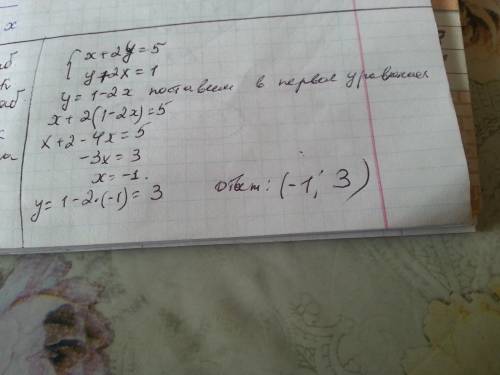 x
{ x+2y=5
y+2x=1
y=1-2x поставим в первое уравнение
x+2(1-2x)=5
x+2-4x=5
-3x=3
x=-1.
y=1-2·(-1)=3 ответ: (-1; 3)